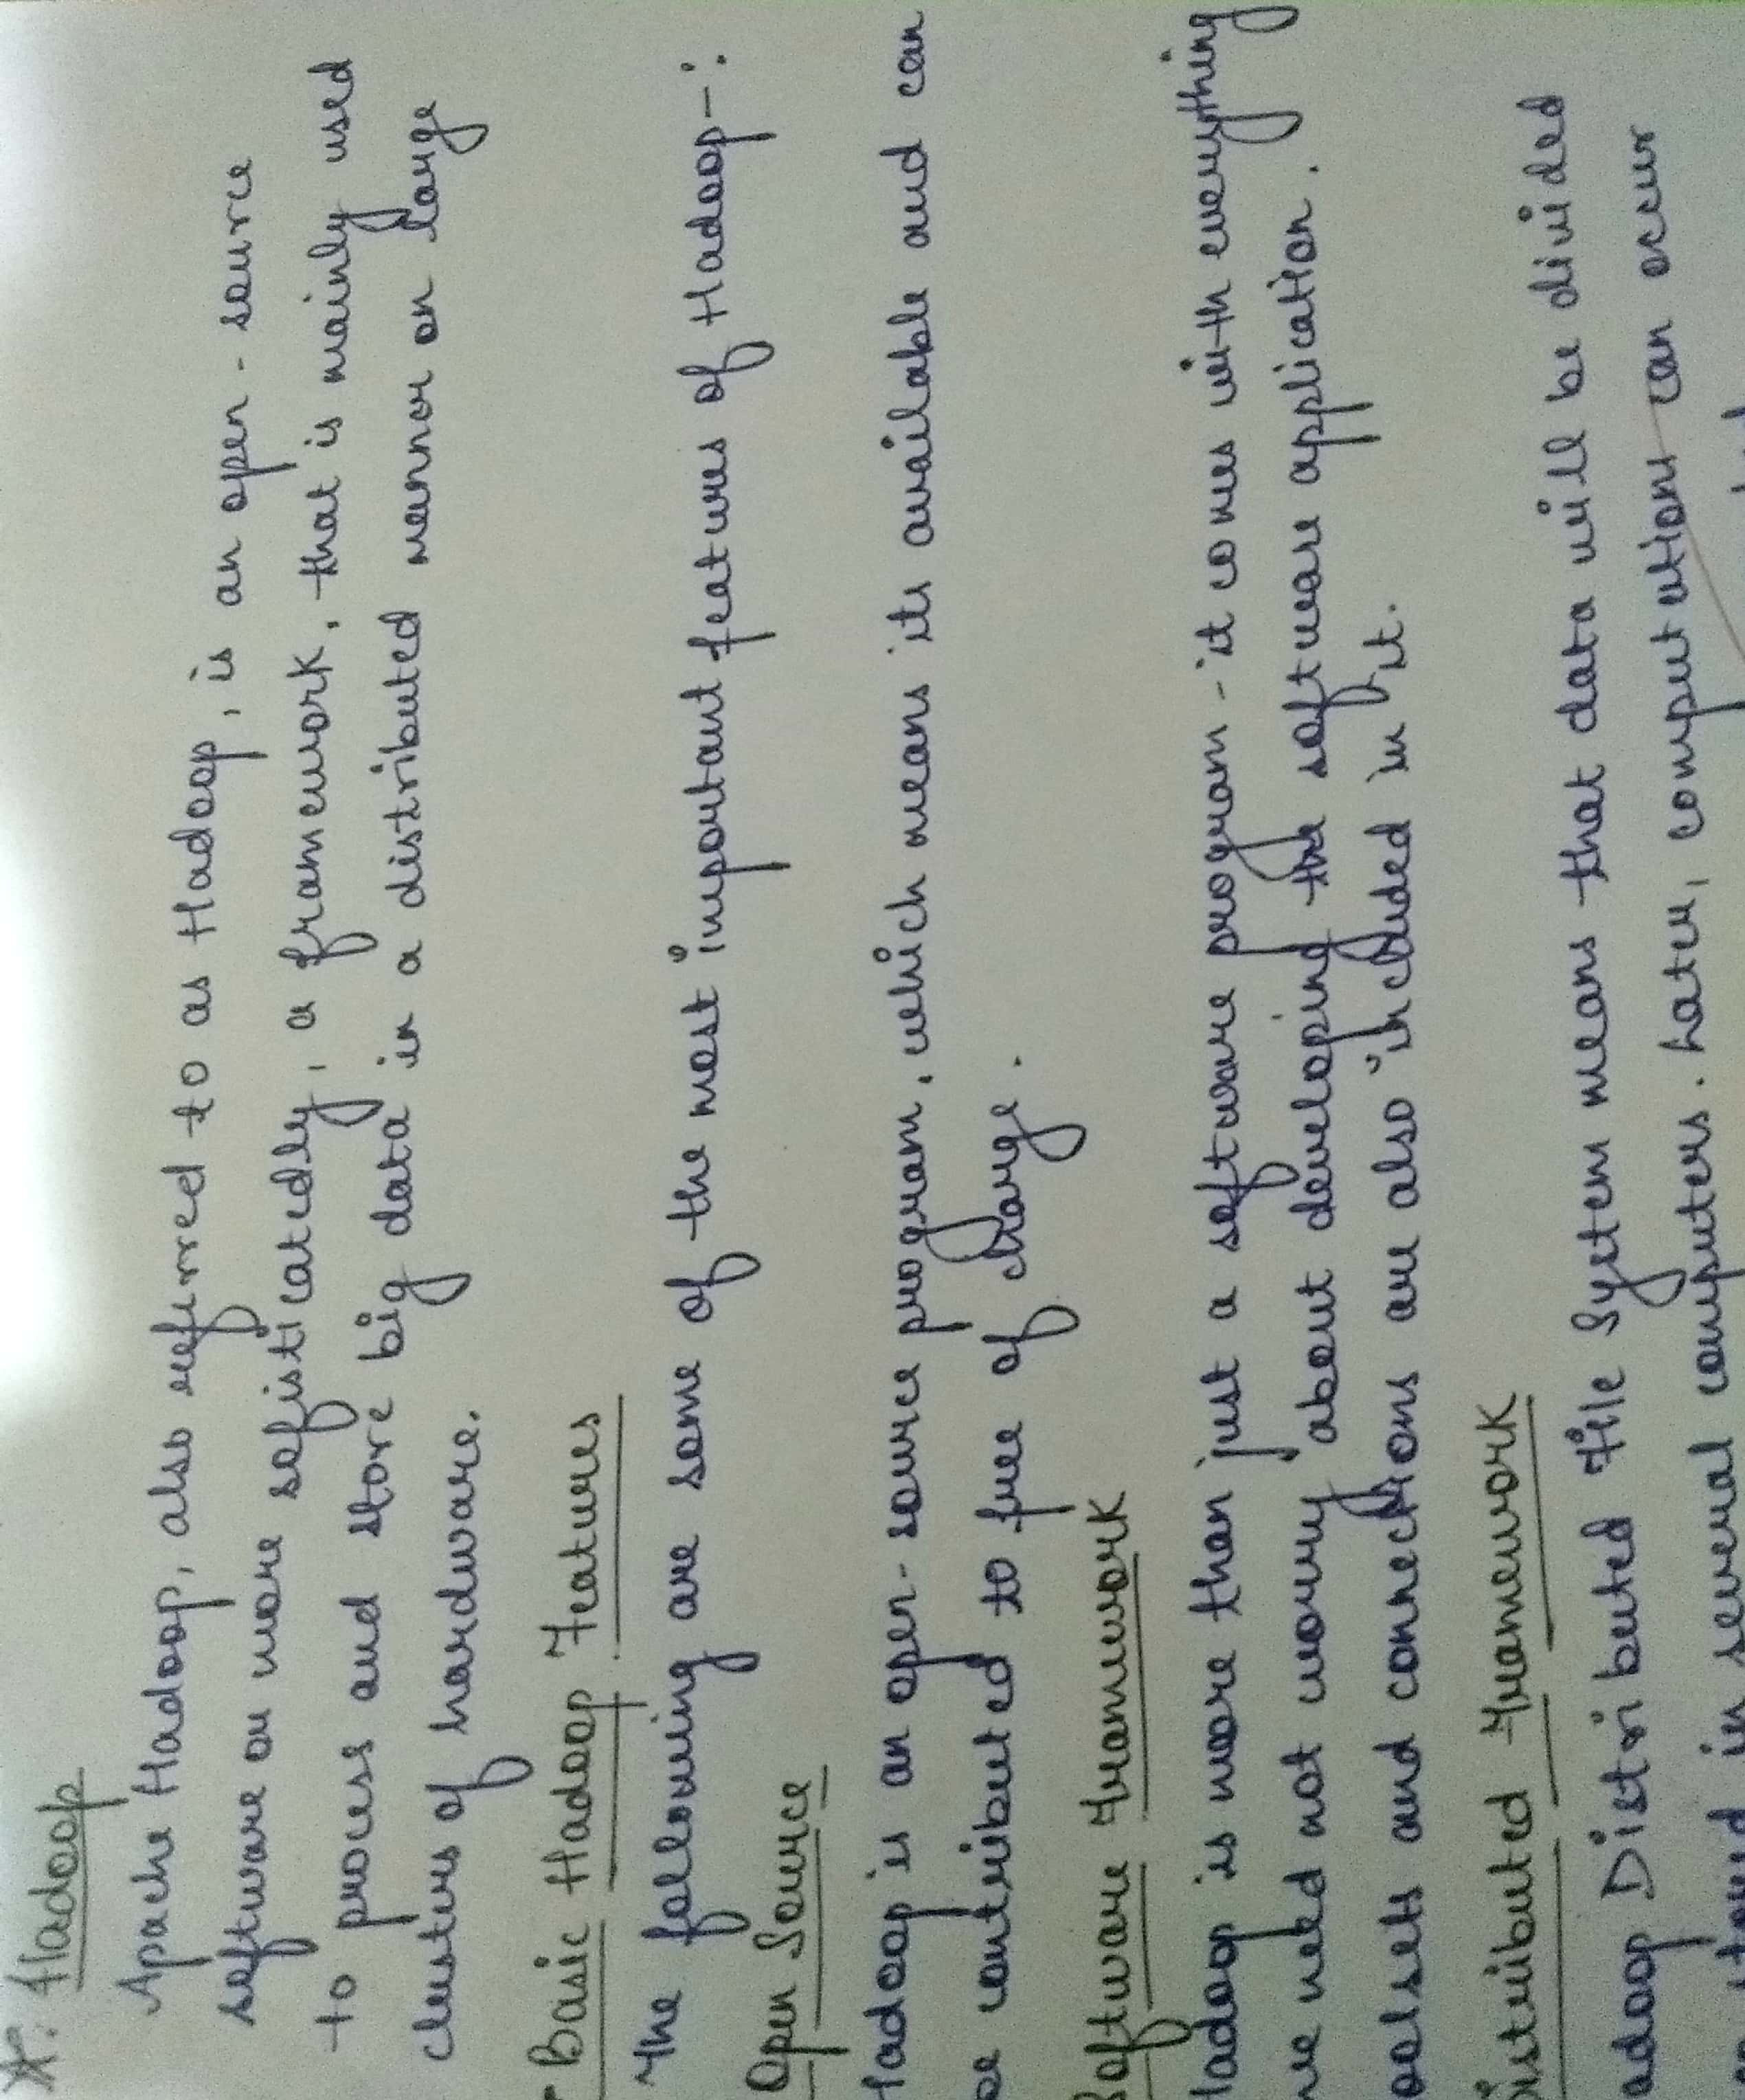 *. Hadoop
Apache Hadoop, also referred to as Hadoop, is an open-source
software or more sofisticatedly, a framework, that is mainly used
to process and store big data in a distributed manner on large
clusters of hardware.
- Basic Hadoop Features
The following are some of the most important features of Hadoop-:
Open Source
Hadoop is an open-source program, which means its available and can
be contributed to free of charge.
Software Framework
Hadoop is more than just a software program - it comes with everything
we need not worry about developing the software application.
oolsets and connections are also included in it.
Distributed Framework
adoop Distributed File System means that data will be divided
stored in several computers. Later, computations can occur